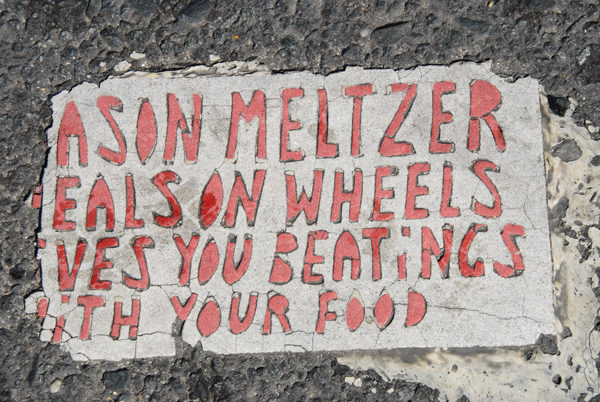 ASON MELTZER
EALS ON WHEELS
IVES YOU BEATINGS
ITH YOUR FOOD